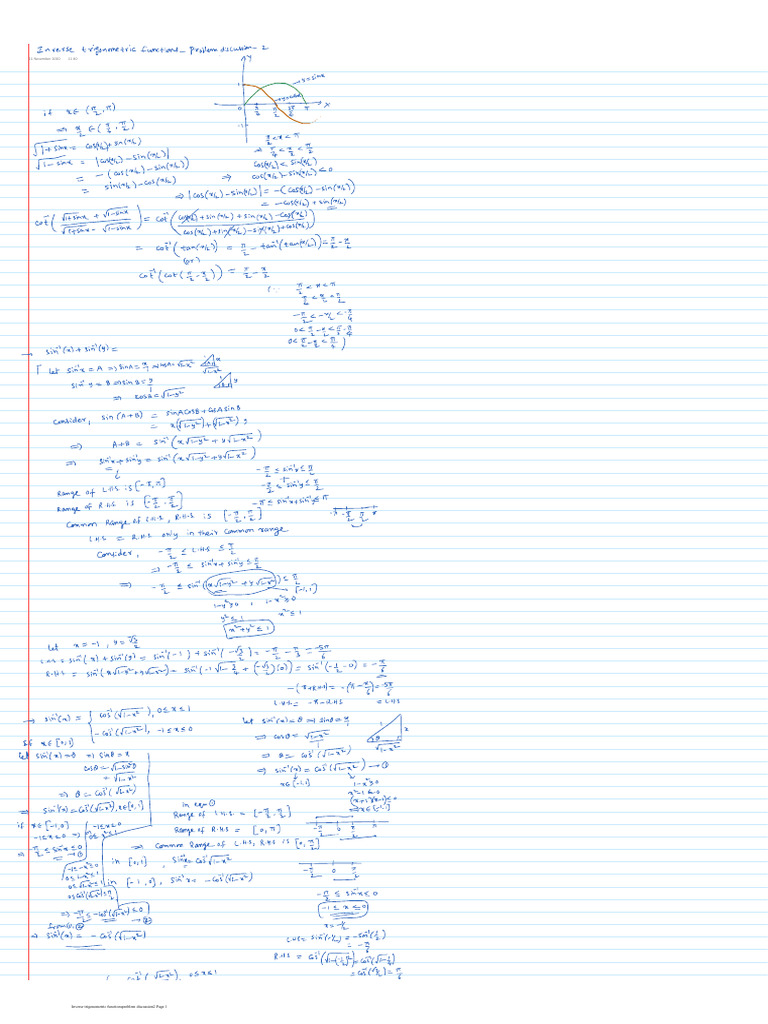 Inverse trigonometric functions_ Problem discussion_ 2
y
y=sinx
y=cosx
x
if x∈(π/2,π)
⇒ x/2∈(π/4,π/2)
√1+sinx = cos(x/2)+sin(x/2)
√1-sinx = |cos(x/2)-sin(x/2)|
= -(cos(x/2)-sin(x/2))
= sin(x/2)-cos(x/2)
π/2<x<π
⇒ π/4<x/2<π/2
cos(x/2)<sin(x/2)
⇒ cos(x/2)-sin(x/2)<0
⇒|cos(x/2)-sin(x/2)| = -(cos(x/2)-sin(x/2))
= -cos(x/2)+sin(x/2)
cot⁻¹(√1+sinx+√1-sinx / √1+sinx-√1-sinx) = cot⁻¹(cos(x/2)+sin(x/2)+sin(x/2)-cos(x/2) / cos(x/2)+sin(x/2)-sin(x/2)+cos(x/2))
= cot⁻¹(tan(x/2)) = π/2-tan⁻¹(tan(x/2))=π/2-x/2
(or)
cot⁻¹(cot(π/2-x/2)) = π/2-x/2
(∵ π/2<x<π
π/4<x/2<π/2
-π/2<-x/2<-π/4
0<π/2-x/2<π/2-π/4
0<π/2-x/2<π/4)
→ sin⁻¹(x)+sin⁻¹(y)=
Let sin⁻¹x=A ⇒sinA=x/1 ⇒cosA=√1-x²
sin⁻¹y=B⇒sinB=y/1
⇒ cosB=√1-y²
Consider, sin(A+B) = sinAcosB+cosAsinB
= x(√1-y²)+(√1-x²)y
⇒ A+B = sin⁻¹(x√1-y²+y√1-x²)
⇒ sin⁻¹x+sin⁻¹y=sin⁻¹(x√1-y²+y√1-x²)
-π/2≤sin⁻¹x≤π/2
-π/2≤sin⁻¹y≤π/2
-π≤sin⁻¹x+sin⁻¹y≤π
Range of L.H.S is[-π,π]
Range of R.H.S is [-π/2,π/2]
Common Range of L.H.S, R.H.S is [-π/2,π/2]
L.H.S = R.H.S only in their common range
Consider, -π/2≤L.H.S≤π/2
⇒ -π/2≤sin⁻¹x+sin⁻¹y≤π/2
⇒ -π/2≤sin⁻¹(x√1-y²+y√1-x²)≤π/2
[-1,1]
1-y²≥0, 1-x²≥0
y²≤1 x²≤1
x²+y²≤1
Let x=-1, y=-√3/2
L.H.S=sin⁻¹(x)+sin⁻¹(y)=sin⁻¹(-1)+sin⁻¹(-√3/2)=-π/2-π/3=-5π/6
R.H.S=sin⁻¹(x√1-y²+y√1-x²)=sin⁻¹(-1√1-3/4+(-√3/2)(0))=sin⁻¹(-1/2-0)=-π/6
-(π+R.H.S)=-(π-π/6)=-5π/6
L.H.S=-π-R.H.S =L.H.S
→ sin⁻¹(x) = { cos⁻¹(√1-x²), 0≤x≤1
-cos⁻¹(√1-x²), -1≤x≤0
If x∈[0,1]
Let sin⁻¹(x)=θ ⇒sinθ=x
cosθ=√1-sin²θ
=√1-x²
⇒ θ=cos⁻¹(√1-x²)
⇒ sin⁻¹(x)=cos⁻¹(√1-x²),x∈[0,1]
if x∈[-1,0]
-1≤x≤0
⇒ -π/2≤sin⁻¹x≤0 →①
0≤√1-x²≤1
0≤cos⁻¹(√1-x²)≤π/2
⇒ -π/2≤-cos⁻¹(√1-x²)≤0 →②
from ①,②
⇒ sin⁻¹(x)=-cos⁻¹(√1-x²)
Let sin⁻¹(x)=θ ⇒sinθ=x/1
⇒ cosθ=√1-x²/1
⇒ θ=cos⁻¹(√1-x²)
⇒ sin⁻¹(x)=cos⁻¹(√1-x²)→①
x∈[-1,1]
1-x²≥0
x²-1≤0
(x+1)(x-1)≤0
⇒x∈[-1,1]
in eqn ①
Range of L.H.S = [-π/2,π/2]
Range of R.H.S = [0,π]
⇒ Common Range of L.H.S, R.H.S is [0,π/2]
in [0,1], sin⁻¹x=cos⁻¹√1-x²
in [-1,0], sin⁻¹x=-cos⁻¹(√1-x²)
-π/2≤sin⁻¹x≤0
-1≤x≤0
x=-1/2
L.H.S=sin⁻¹(-1/2)=-sin⁻¹(1/2)
=-π/6
R.H.S=cos⁻¹(√1-(-1/2)²)=cos⁻¹(√1-1/4)
=cos⁻¹(√3/2)=π/6
Inverse trigonometric functions(problem discussion)2 Page 1